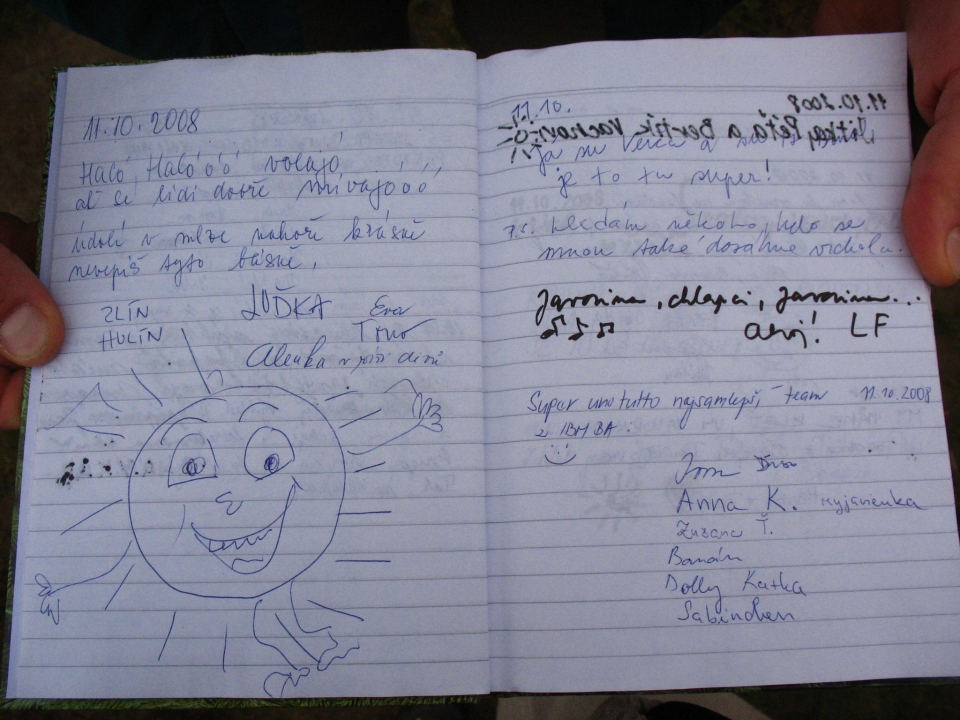 11.10.2008
Haló, Halóóó volajó
ať se lidi dobře mívajóóó
údolí v mlze nahoře krásně
nevepíš tyto básně,
ZLÍN
HULÍN
LUĎKA Eva
Alenka v říši divů
11.10.
11.10.2008
Jitka, Péťa a Bertík
Já su Verča a
je to tu super!
P.S. hledám někoho, kdo se
mnou také dosáhne vrcholu.
Javorina, chlapci, Javorina...
ahoj! LF
Super tutto team 11.10.2008
z IBM BA.
Anna K. myjavienka
Zuzana Ť.
Banán
Dolly Katka
Sabinchen